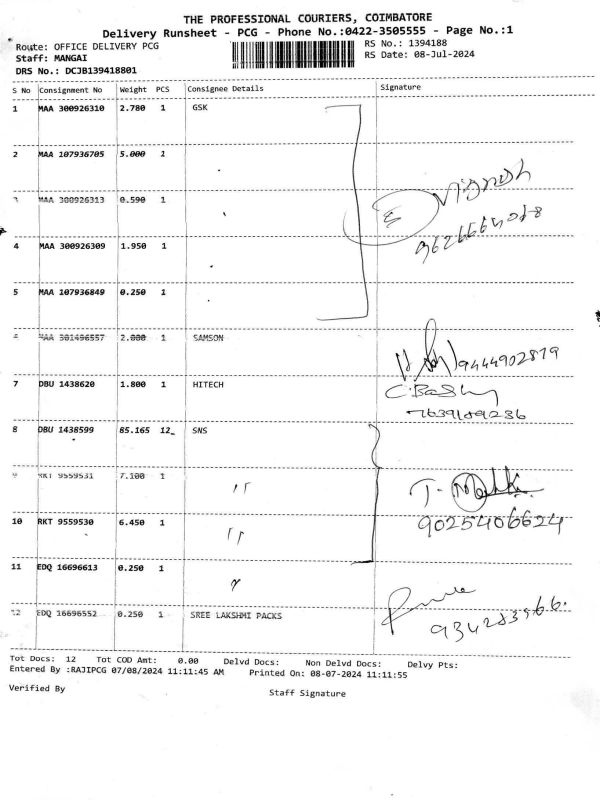 THE PROFESSIONAL COURIERS, COIMBATORE
Delivery Runsheet - PCG - Phone No.:0422-3505555 - Page No.:1
Route: OFFICE DELIVERY PCG RS No.: 1394188
Staff: MANGAI RS Date: 08-Jul-2024
DRS No.: DCJB139418801
S No Consignment No Weight PCS Consignee Details Signature
1 MAA 300926310 2.780 1 GSK
2 MAA 107936705 5.000 1
3 MAA 300926313 0.590 1
Vignesh
4 MAA 300926309 1.950 1
5 MAA 107936849 0.250 1
MAA 301496557 2.000 1 SAMSON
9444902879
7 DBU 1438620 1.800 1 HITECH
C. Bas
7639189236
8 DBU 1438599 85.165 12 SNS
9 RKT 9559531 7.100 1 "
T.
10 RKT 9559530 6.450 1 "
9025406624
11 EDQ 16696613 0.250 1 "
12 EDQ 16696552 0.250 1 SREE LAKSHMI PACKS
Tot Docs: 12 Tot COD Amt: 0.00 Delvd Docs: Non Delvd Docs: Delvy Pts:
Entered By :RAJIPCG 07/08/2024 11:11:45 AM Printed On: 08-07-2024 11:11:55
Verified By Staff Signature